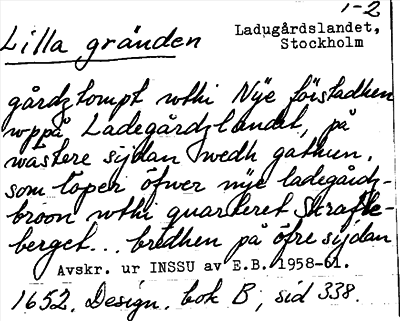 1-2
Lilla gränden
Ladugårdslandet,
Stockholm
gårdztompt wthi Nÿe förstadhen
wppå Ladegårdzlandet, på
wästere sijdan wedh gathun,
som löper öfwer nÿe ladegårdz-
broon wthi quarteret Skraffle-
berget... bredhen på öfre sijdan
Avskr. ur INSSU av E.B. 1958-61.
1652. Design. bok B, sid 338.